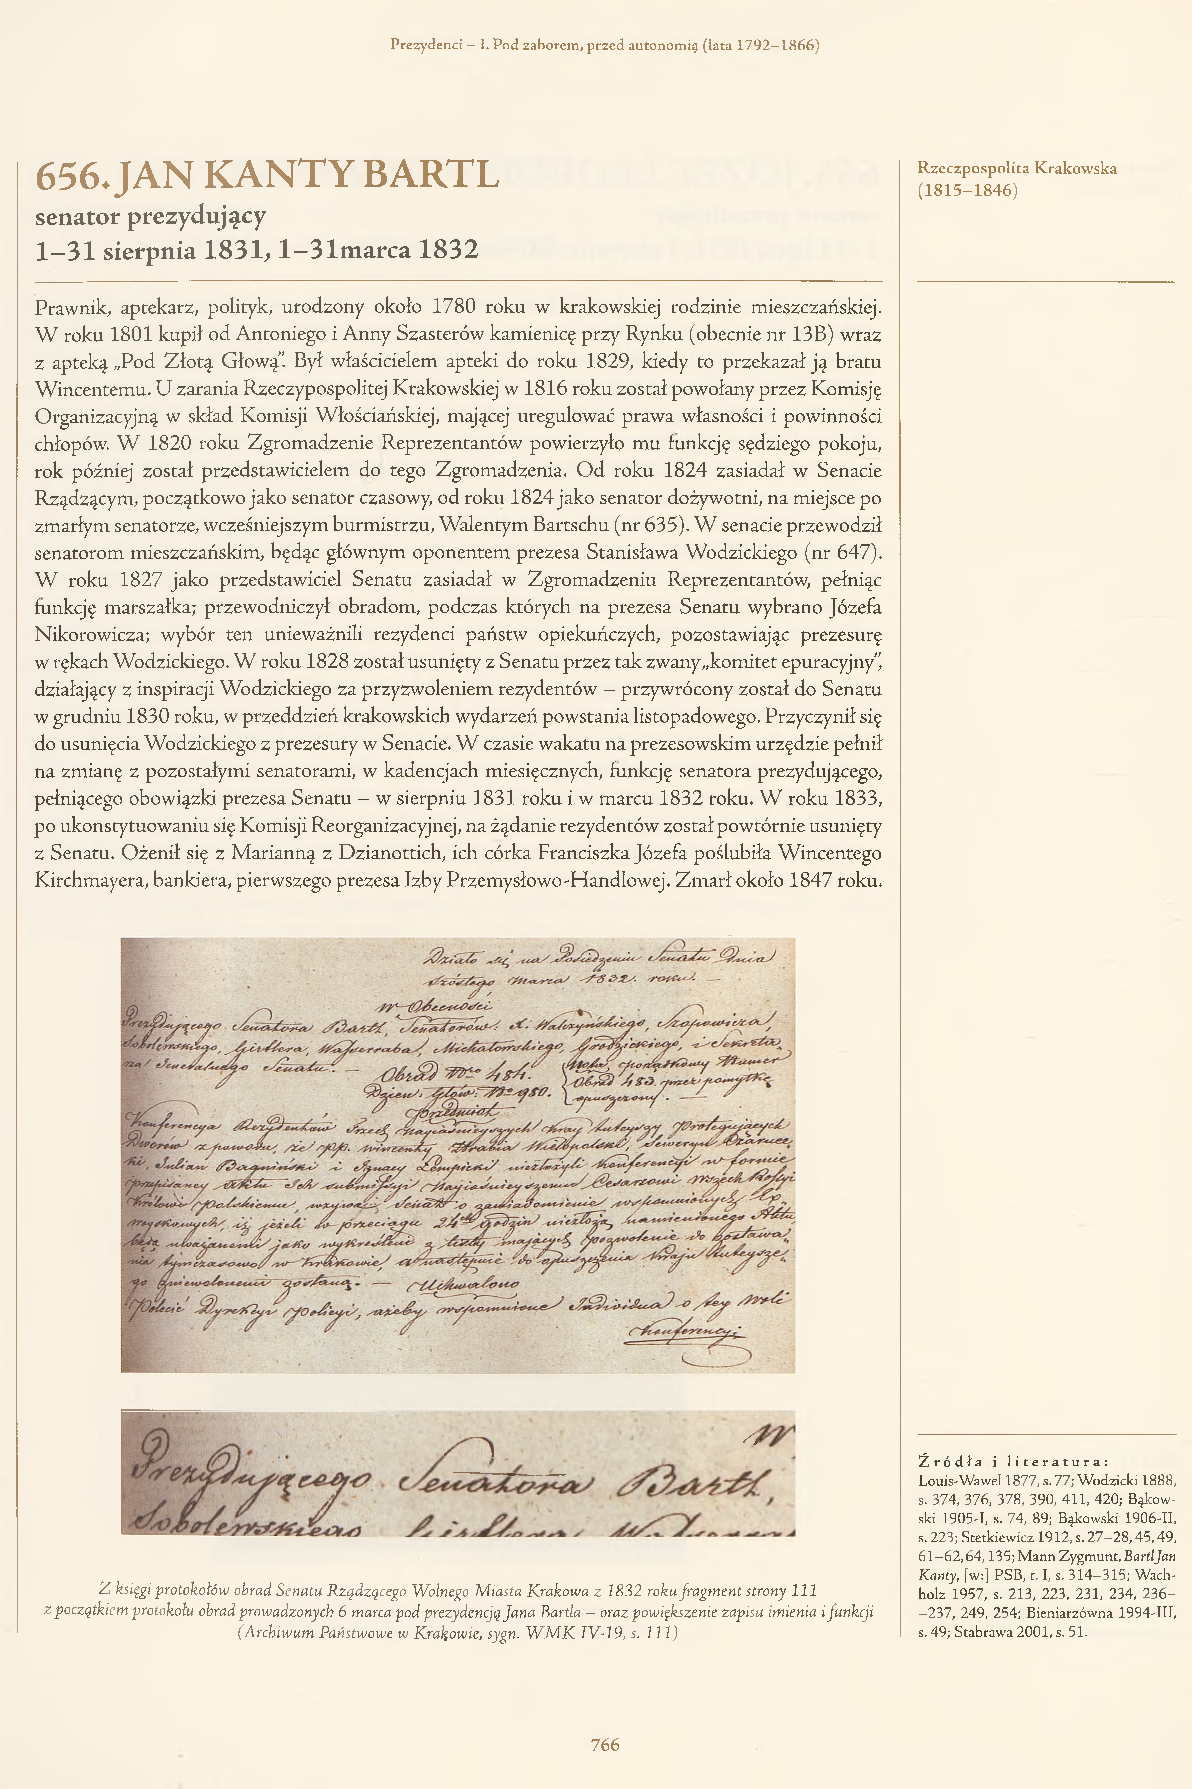 Prezydenci – I. Pod zaborem, przed autonomią (lata 1792–1866)
656. JAN KANTY BARTL
senator prezydujący
1–31 sierpnia 1831, 1–31marca 1832
Rzeczpospolita Krakowska
(1815–1846)
Prawnik, aptekarz, polityk, urodzony około 1780 roku w krakowskiej rodzinie mieszczańskiej.
W roku 1801 kupił od Antoniego i Anny Szasterów kamienicę przy Rynku (obecnie nr 13B) wraz
z apteką „Pod Złotą Głową”. Był właścicielem apteki do roku 1829, kiedy to przekazał ją bratu
Wincentemu. U zarania Rzeczypospolitej Krakowskiej w 1816 roku został powołany przez Komisję
Organizacyjną w skład Komisji Włościańskiej, mającej uregulować prawa własności i powinności
chłopów. W 1820 roku Zgromadzenie Reprezentantów powierzyło mu funkcję sędziego pokoju,
rok później został przedstawicielem do tego Zgromadzenia. Od roku 1824 zasiadał w Senacie
Rządzącym, początkowo jako senator czasowy, od roku 1824 jako senator dożywotni, na miejsce po
zmarłym senatorze, wcześniejszym burmistrzu, Walentym Bartschu (nr 635). W senacie przewodził
senatorom mieszczańskim, będąc głównym oponentem prezesa Stanisława Wodzickiego (nr 647).
W roku 1827 jako przedstawiciel Senatu zasiadał w Zgromadzeniu Reprezentantów, pełniąc
funkcję marszałka; przewodniczył obradom, podczas których na prezesa Senatu wybrano Józefa
Nikorowicza; wybór ten unieważnili rezydenci państw opiekuńczych, pozostawiając prezesurę
w rękach Wodzickiego. W roku 1828 został usunięty z Senatu przez tak zwany „komitet epuracyjny”,
działający z inspiracji Wodzickiego za przyzwoleniem rezydentów – przywrócony został do Senatu
w grudniu 1830 roku, w przeddzień krakowskich wydarzeń powstania listopadowego. Przyczynił się
do usunięcia Wodzickiego z prezesury w Senacie. W czasie wakatu na prezesowskim urzędzie pełnił
na zmianę z pozostałymi senatorami, w kadencjach miesięcznych, funkcję senatora prezydującego,
pełniącego obowiązki prezesa Senatu – w sierpniu 1831 roku i w marcu 1832 roku. W roku 1833,
po ukonstytuowaniu się Komisji Reorganizacyjnej, na żądanie rezydentów został powtórnie usunięty
z Senatu. Ożenił się z Marianną z Dzianottich, ich córka Franciszka Józefa poślubiła Wincentego
Kirchmayera, bankiera, pierwszego prezesa Izby Przemysłowo-Handlowej. Zmarł około 1847 roku.
Działo się na Posiedzeniu Senatu Dnia
szóstego Marca 1832. roku. —
w Obecności
Prezydującego Senatora Bartl, Senatorów: X: Walczyńskiego, Soczowicza,
Sobolewskiego, Girtlera, Wasserraba, Michałowskiego, Grodzickiego, i Sekreta-
rza Jeneralnego Senatu. —
Obrad Nro 484.
Dzien: Głów: No 980.
Nota, porządkowy Numer
Obrad 483. przez pomyłkę
opuszczony. —
Przedmiot
Konferencya Rezydentów Trzech Najiaśnieyszych Kray tuteyszy Protegujących
Dworów z powodu, że pp. Wincenty Hrabia Wielopolski, Seweryn
Julian i Ignacy Łempicki nie złożyli Konferencyi w formie
przepisaney Aktu Ich submissyi Najiaśnieyszemu Cesarzowi Wszech Rossyi
Królowi Polskiemu, wzywa Senat o zawiadomienie wspomnionych
iż jeżeli w przeciągu 24ch godzin nie złożą namienionego Aktu,
będą uważanemi jako wykreśleni z listy mających pozwolenie do pozstawa-
nia tymczasowo w Krakowie, a następnie do opuszczenia Kraju tuteysze-
go zniewolonemi zostaną. — Uchwalono
Polecić Dyrekcyi Policyi, ażeby wspomnione Individua o tey Woli
Konferencyi
W
Prezydującego Senatora Bartl,
Sobolewskiego Girtlera
Z księgi protokołów obrad Senatu Rządzącego Wolnego Miasta Krakowa z 1832 roku fragment strony 111
z początkiem protokołu obrad prowadzonych 6 marca pod prezydencją Jana Bartla – oraz powiększenie zapisu imienia i funkcji
(Archiwum Państwowe w Krakowie, sygn. WMK IV-19, s. 111)
Źródła i literatura:
Louis-Wawel 1877, s. 77; Wodzicki 1888,
s. 374, 376, 378, 390, 411, 420; Bąkow-
ski 1905-I, s. 74, 89; Bąkowski 1906-II,
s. 223; Stetkiewicz 1912, s. 27–28, 45, 49,
61–62, 64, 135; Mann Zygmunt, Bartl Jan
Kanty, [w:] PSB, t. I, s. 314–315; Wach-
holz 1957, s. 213, 223, 231, 234, 236–
–237, 249, 254; Bieniarzówna 1994-III,
s. 49; Stabrawa 2001, s. 51.
766